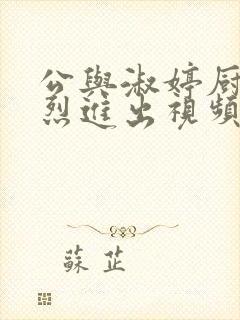 公與淑婷厨
烈進出視頻
蘇芷